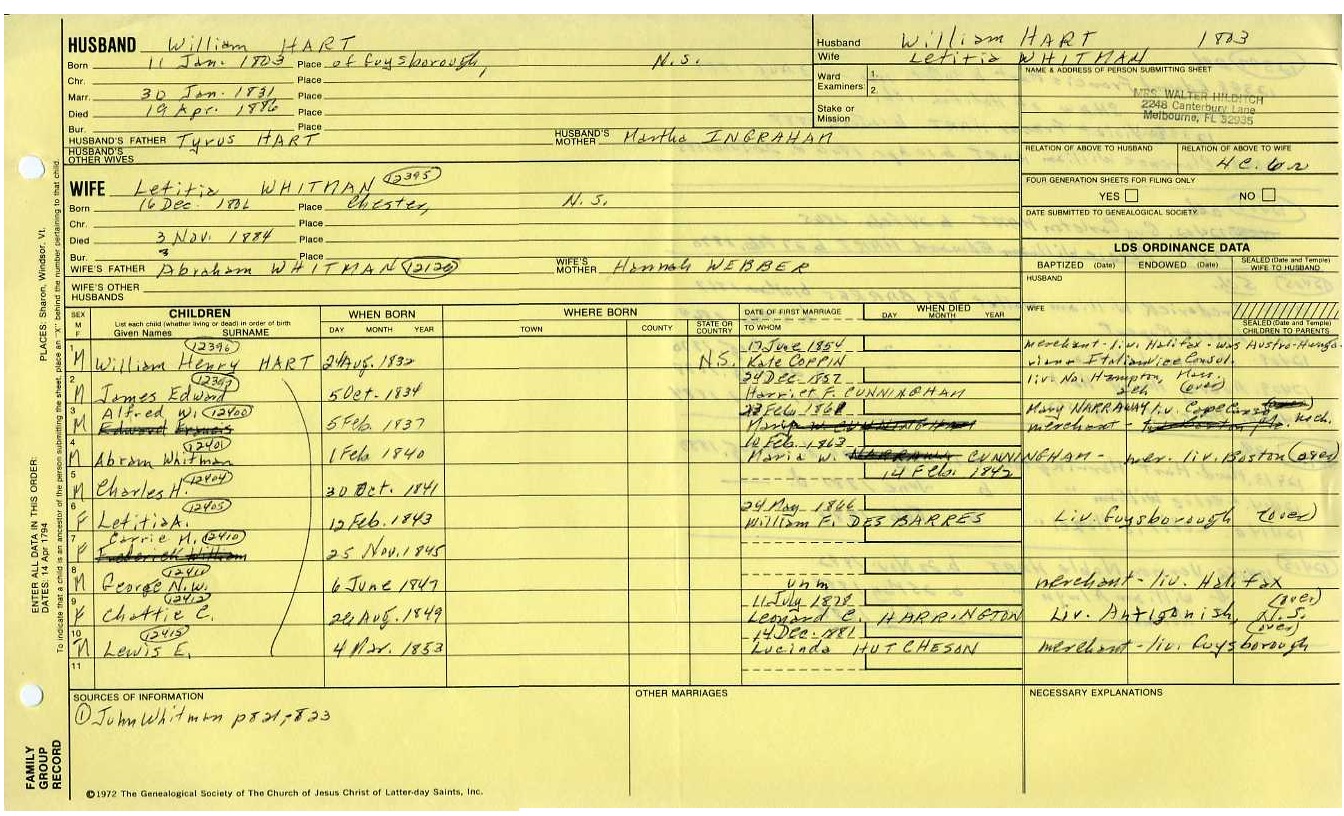 HUSBAND William HART
Born 11 Jan. 1803 Place of Guysborough, N.S.
Chr. Place
Marr. 30 Jan. 1831 Place
Died 19 Apr. 1886 Place
Bur. Place
HUSBAND'S FATHER Tyrus HART HUSBAND'S MOTHER Martha INGRAHAM
HUSBAND'S OTHER WIVES
Husband William HART 1803
Wife Letitia WHITMAN
Ward Examiners 1.
2.
Stake or Mission
NAME & ADDRESS OF PERSON SUBMITTING SHEET
MRS. WALTER HILDITCH
2248 Canterbury Lane
Melbourne, FL 32935
RELATION OF ABOVE TO HUSBAND RELATION OF ABOVE TO WIFE
4C.6r
FOUR GENERATION SHEETS FOR FILING ONLY
YES NO
DATE SUBMITTED TO GENEALOGICAL SOCIETY
WIFE Letitia WHITMAN 12395
Born 16 Dec. 1806 Place Chester, N.S.
Chr. Place
Died 3 Nov. 1884 Place
Bur. Place
WIFE'S FATHER Abraham WHITMAN 12120 WIFE'S MOTHER Hannah WEBBER
WIFE'S OTHER HUSBANDS
LDS ORDINANCE DATA
BAPTIZED (Date) ENDOWED (Date) SEALED (Date and Temple) WIFE TO HUSBAND
HUSBAND
WIFE
SEALED (Date and Temple) CHILDREN TO PARENTS
SEX M F
CHILDREN
List each child (whether living or dead) in order of birth
Given Names SURNAME
WHEN BORN
DAY MONTH YEAR
WHERE BORN
TOWN COUNTY STATE OR COUNTRY
DATE OF FIRST MARRIAGE
TO WHOM
WHEN DIED
DAY MONTH YEAR
1 M 12396 William Henry HART 24 Aug. 1832 N.S. 17 June 1854 Kate COPPIN merchant - liv. Halifax - was Austro-Hunga-
rian & Italian Vice Consul.
2 M James Edward 12397 5 Oct. 1834 24 Dec. 1857 Harriet F. CUNNINGHAM liv. No. Hampton, Mass. (over)
3 M Alfred W. 12400 Edward Francis 5 Feb. 1837 Maria W. CUNNINGHAM Mary NARRAWAY liv. Cape Canso
merchant -
4 M 12401 Abram Whitman 1 Feb. 1840 10 Feb. 1863 Maria W. NARRAWAY CUNNINGHAM - mer. liv. Boston (over)
5 M Charles H. 12404 30 Oct. 1841 14 Feb. 1842
6 F 12405 Letitia A. 12 Feb. 1843 24 May 1866 William F. DES BARRES Liv. Guysborough (over)
7 F Carrie M. 12410 Frederick William 25 Nov. 1845
8 M 12411 George N.W. 6 June 1847 unm merchant - liv. Halifax
9 F 12412 Chattie C. 26 Aug. 1849 11 July 1878 Leonard C. HARRINGTON Liv. Antigonish, N.S. (over)
10 M 12415 Lewis E. 4 Mar. 1853 14 Dec. 1881 Lucinda HUTCHESON merchant - liv. Guysborough (over)
11
SOURCES OF INFORMATION
① John Whitman p821-823
OTHER MARRIAGES
NECESSARY EXPLANATIONS
©1972 The Genealogical Society of The Church of Jesus Christ of Latter-day Saints, Inc.
FAMILY GROUP RECORD
ENTER ALL DATA IN THIS ORDER:
DATES: 14 Apr 1794 PLACES: Sharon, Windsor, Vt.
To indicate that a child is an ancestor of the person submitting the sheet, place an "X" behind the number pertaining to that child.